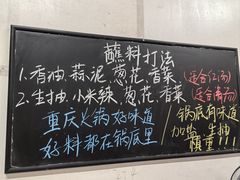 蘸料打法
1.香油.蒜泥.葱花.香菜.(适合红汤)
2.生抽.小米辣.葱花.香菜(适合清汤)
重庆火锅好味道
好料都在锅底里
锅底有味道
加盐、生抽
慎重!!!